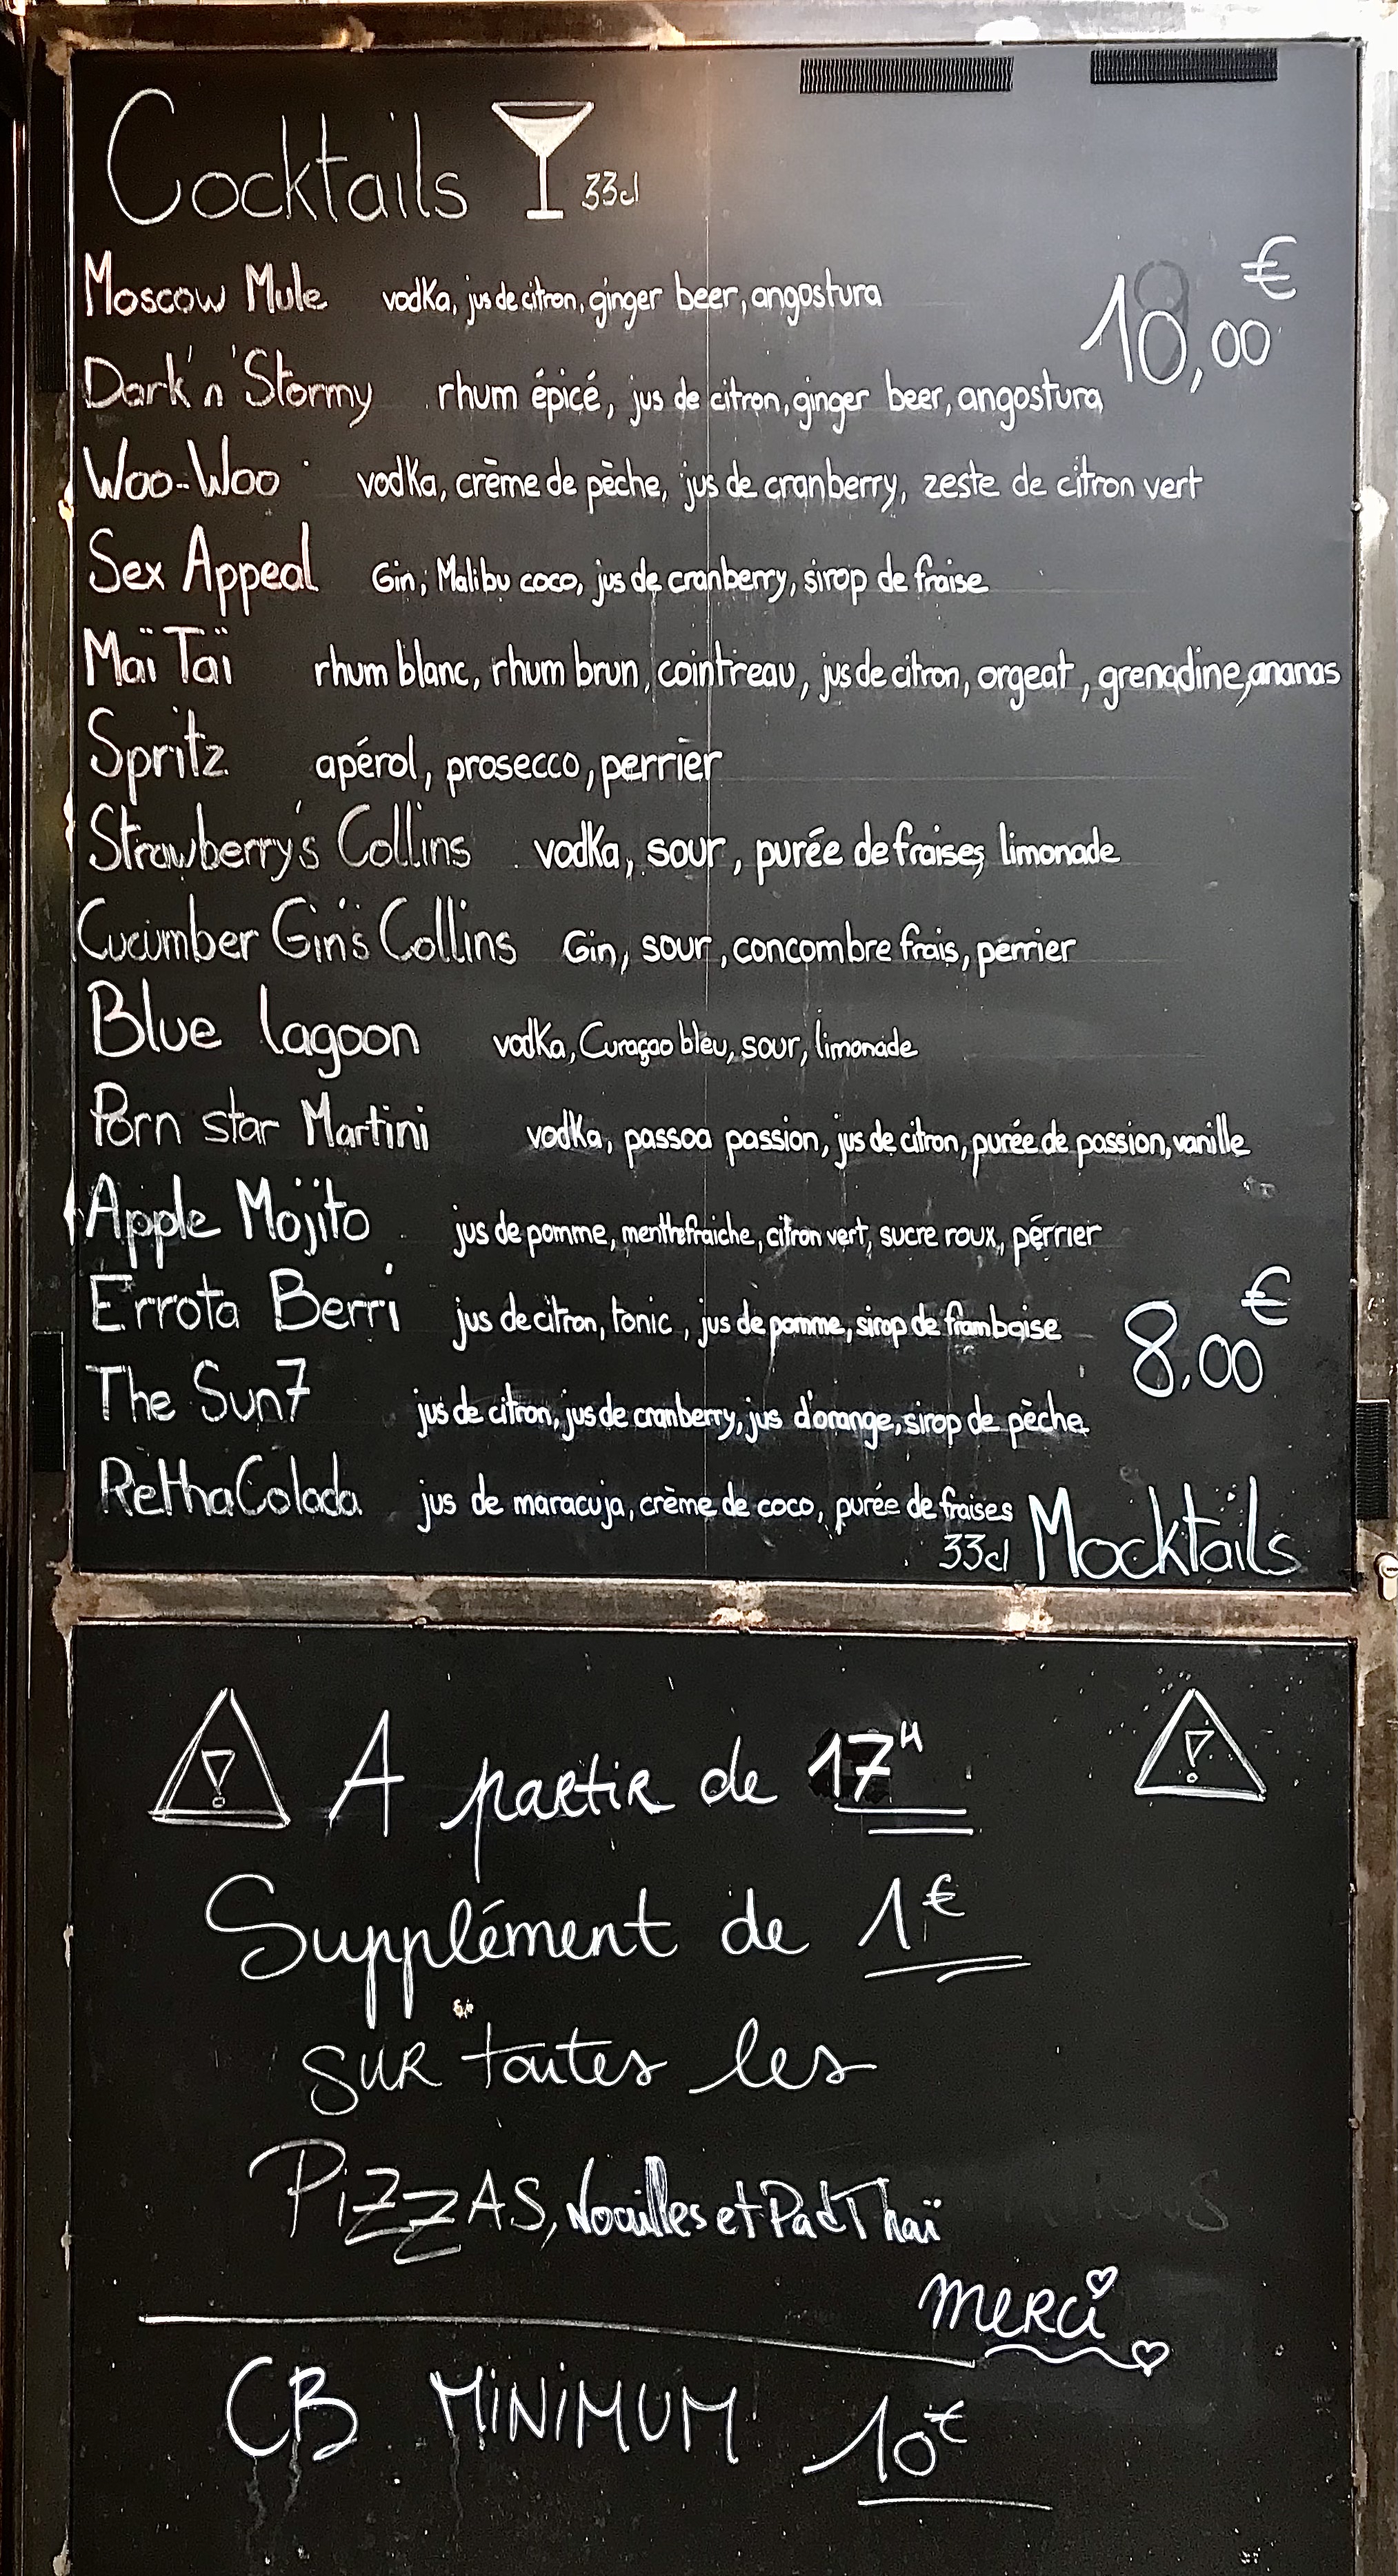 Cocktails 33cl
Moscow Mule vodka, jus de citron, ginger beer, angostura
10,00 €
Dark 'n' Stormy rhum épicé, jus de citron, ginger beer, angostura
Woo-Woo vodka, crème de pèche, jus de cranberry, zeste de citron vert
Sex Appeal Gin, Malibu coco, jus de cranberry, sirop de fraise
Maï Taï rhum blanc, rhum brun, cointreau, jus de citron, orgeat, grenadine, ananas
Spritz apérol, prosecco, perrier
Strawberry's Collins vodka, sour, purée de fraises, limonade
Cucumber Gin's Collins Gin, sour, concombre frais, perrier
Blue lagoon vodka, Curaçao bleu, sour, limonade
Porn star Martini vodka, passoa passion, jus de citron, purée de passion, vanille
Apple Mojito jus de pomme, menthe fraiche, citron vert, sucre roux, pérrier
Errota Berri jus de citron, tonic, jus de pomme, sirop de framboise
8,00 €
The Sun7 jus de citron, jus de cranberry, jus d'orange, sirop de pèche
RethaColada jus de maracuja, crème de coco, purée de fraises
33cl Mocktails
A partir de 17H
Supplément de 1€
SUR toutes les
PiZZAS, Nouilles et Pad Thaï
merci
CB MiNiMUM 10€